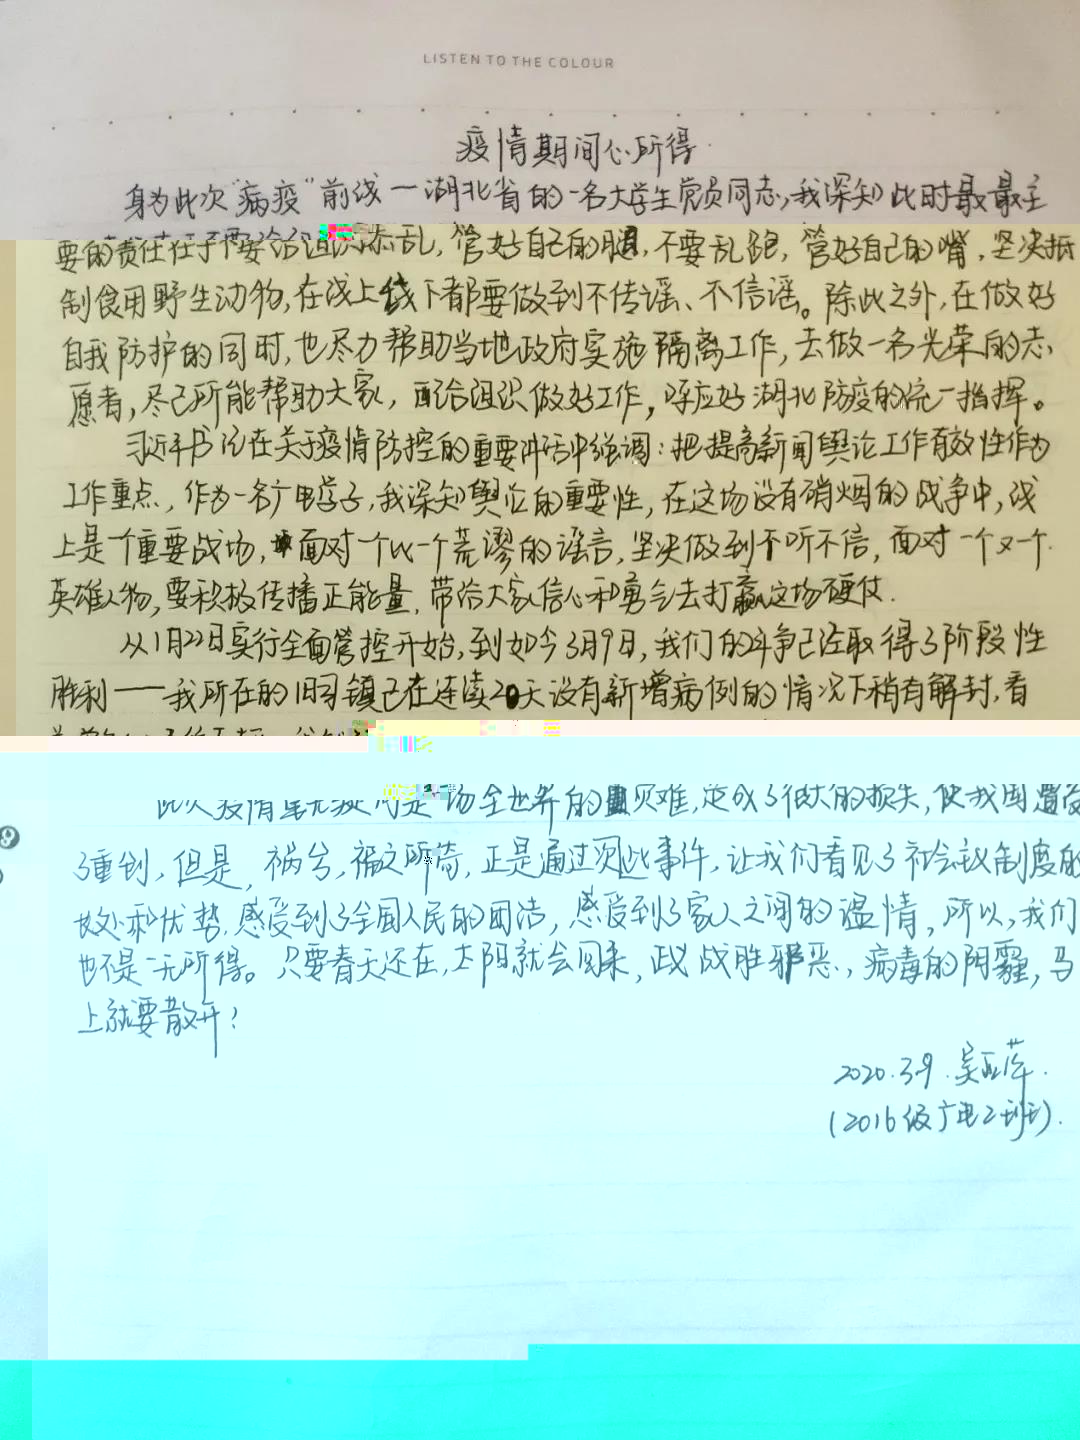 LISTEN TO THE COLOUR
疫情期间心所得
身为此次"病疫"前线一湖北省的一名大学生党员同志,我深知此时最最主
要的责任在于不要给组织添乱,管好自己的腿,不要乱跑,管好自己的嘴,坚决抵
制食用野生动物,在线上线下都要做到不传谣、不信谣。除此之外,在做好
自我防护的同时,也尽力帮助当地政府实施隔离工作,去做一名光荣的志
愿者,尽己所能帮助大家,配合组织做好工作,呼应好湖北防疫的统一指挥。
习近平书记在关于疫情防控的重要讲话中强调:把提高新闻舆论工作有效性作为
工作重点,作为一名广电学子,我深知舆论的重要性,在这场没有硝烟的战争中,线
上是一个重要战场,面对一个又一个荒谬的谣言,坚决做到不听不信,面对一个又一个
英雄人物,要积极传播正能量,带给大家信心和勇气去打赢这场硬仗.
从1月22日实行全面管控开始,到如今3月9日,我们的斗争已经取得了阶段性
胜利——我所在的旧司镇已在连续20天没有新增病例的情况下稍有解封,看
此次疫情毫无疑问是一场全世界的灾难,造成了很大的损失,使我国遭受
了重创,但是,祸兮,福之所倚,正是通过次此事件,让我们看见了社会主义制度的
好处和优势,感受到了全国人民的团结,感受到了家人之间的温情,所以,我们
也不是一无所得。只要春天还在,太阳就会回来,正义战胜邪恶,病毒的阴霾,马
上就要散开!
2020.3.9.吴亚萍.
(2016级广电2班).